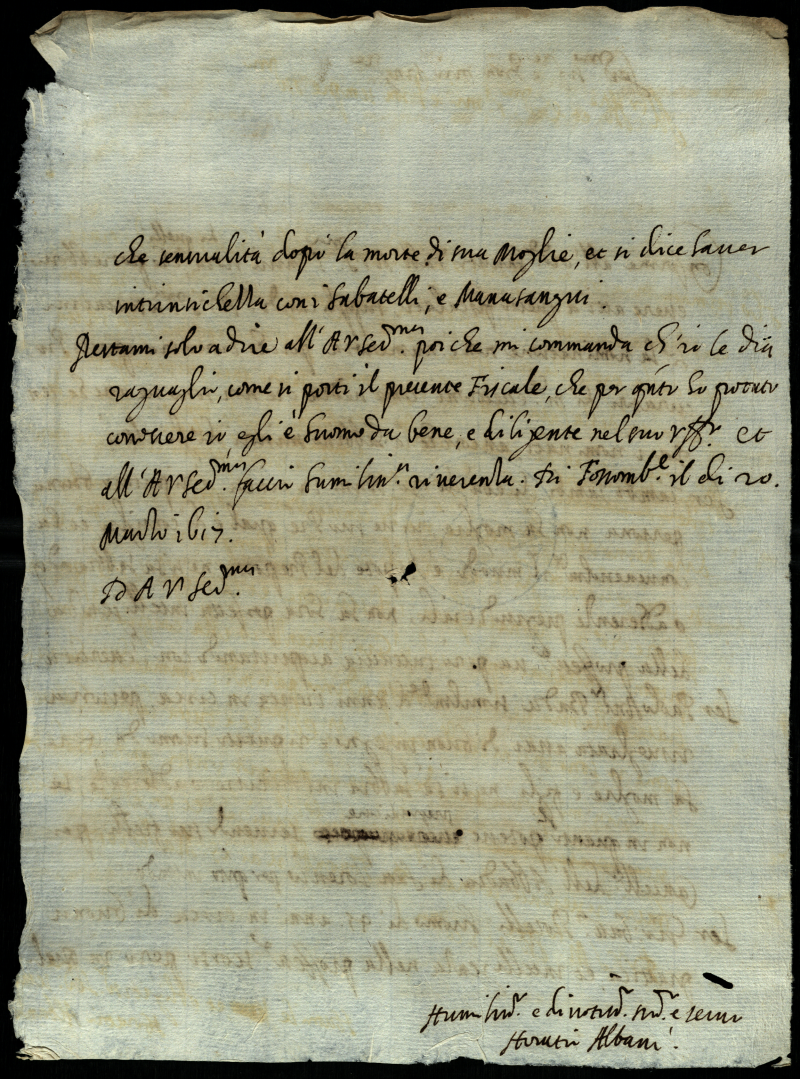 che sensualità dopò la morte di sua Moglie, et si dice haver
intrinsichella con i Sabatelli, e Manasangui.
Restami solo a dire all' A V Ser.ma poi che mi commanda ch' io le dia
raguaglio, come si porti il presente Fiscale, che per q.nto ho potuto
conoscere io egli è huomo da bene, e diligente nel suo uff.o et
all' A V Ser.ma faccio humiliss.a riverenza. Di Fossomb.e il di 20.
Marzo 1617.
D A V Ser.ma
Humiliss.o e divotiss.o sud.o e ser.re
Horatio Albani.